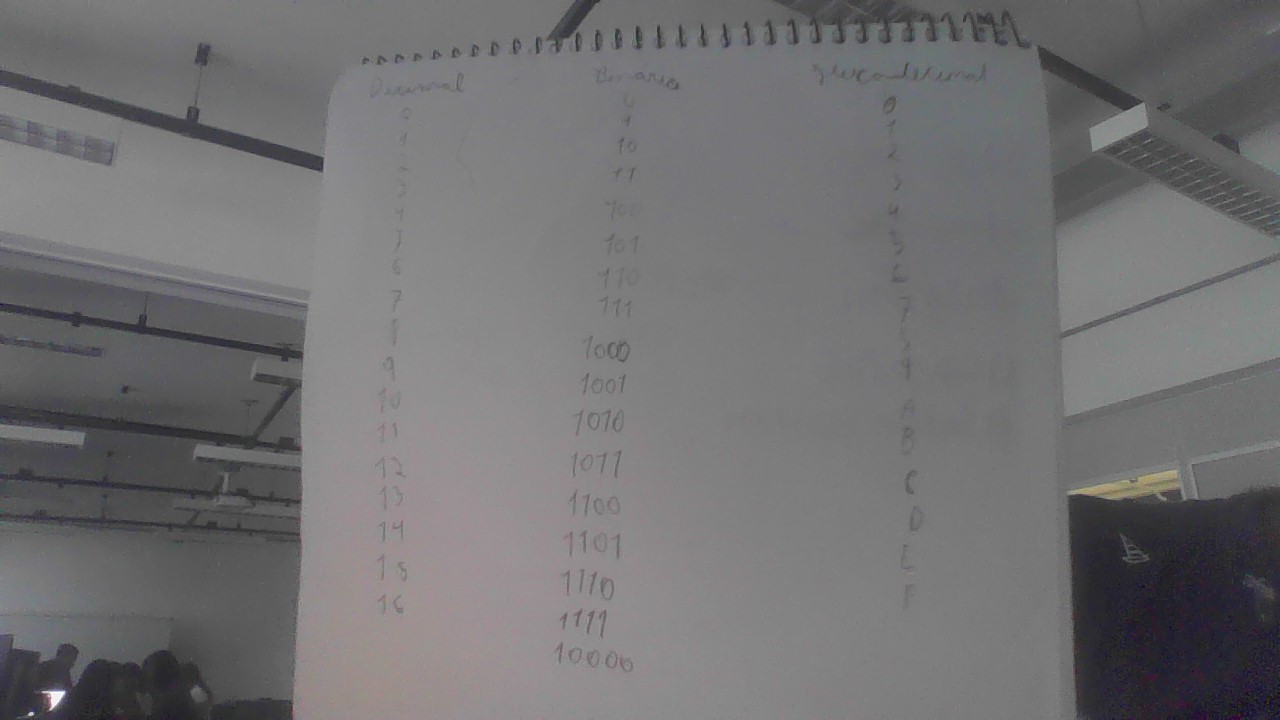 Decimal Binario Hexadecimal
0 0 0
1 1 1
2 10 2
3 11 3
4 100 4
5 101 5
6 110 6
7 111 7
8 1000
9 1001 9
10 1010 A
11 1011 B
12 1100 C
13 1101 D
14 1110 E
15 1111 F
16 10000